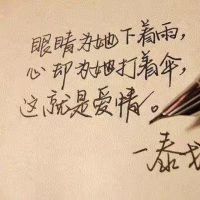 眼睛为她下着雨，
心却为她打着伞，
这就是爱情。
一泰戈